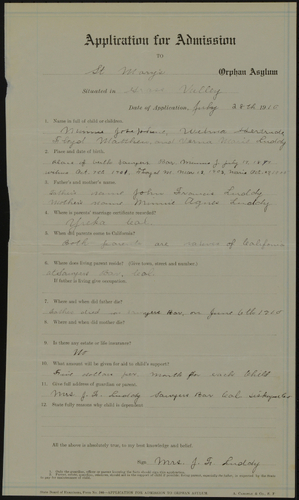 Application for Admission
TO
St. Mary's Orphan Asylum
Situated in Grass Valley
Date of Application, July 28th 1910
1. Name in full of child or children.
Minnie Josephine, Gertrude
Floyd Matthew and Verna Marie Luddy
2. Place and date of birth.
Place of birth Sawyers Bar, Minnie J July
3. Father's and mother's name.
Father's name John Francis Luddy
Mother's name Minnie Agnes Luddy
4. Where is parents' marriage certificate recorded?
Yreka Cal.
5. When did parents come to California?
Both parents are natives of California
6. Where does living parent reside? Give town, street and number
At Sawyers Bar, Cal
If father is living give occupation.
7. Where and when did father die?
Father died in Sawyers Bar, on June 6th 1910
8. Where and when did mother die?
9. Is there any estate or life insurance?
No
10. What amount will be given for aid to child's support?
Five dollars per month for each child
11. Give full address of guardian or parent.
Mrs J. F. Luddy Sawyers Bar Cal Siskiyou Co
12. State fully reasons why child is dependent
All the above is absolutely true, to my best knowledge and belief.
Sign Mrs J. F. Luddy